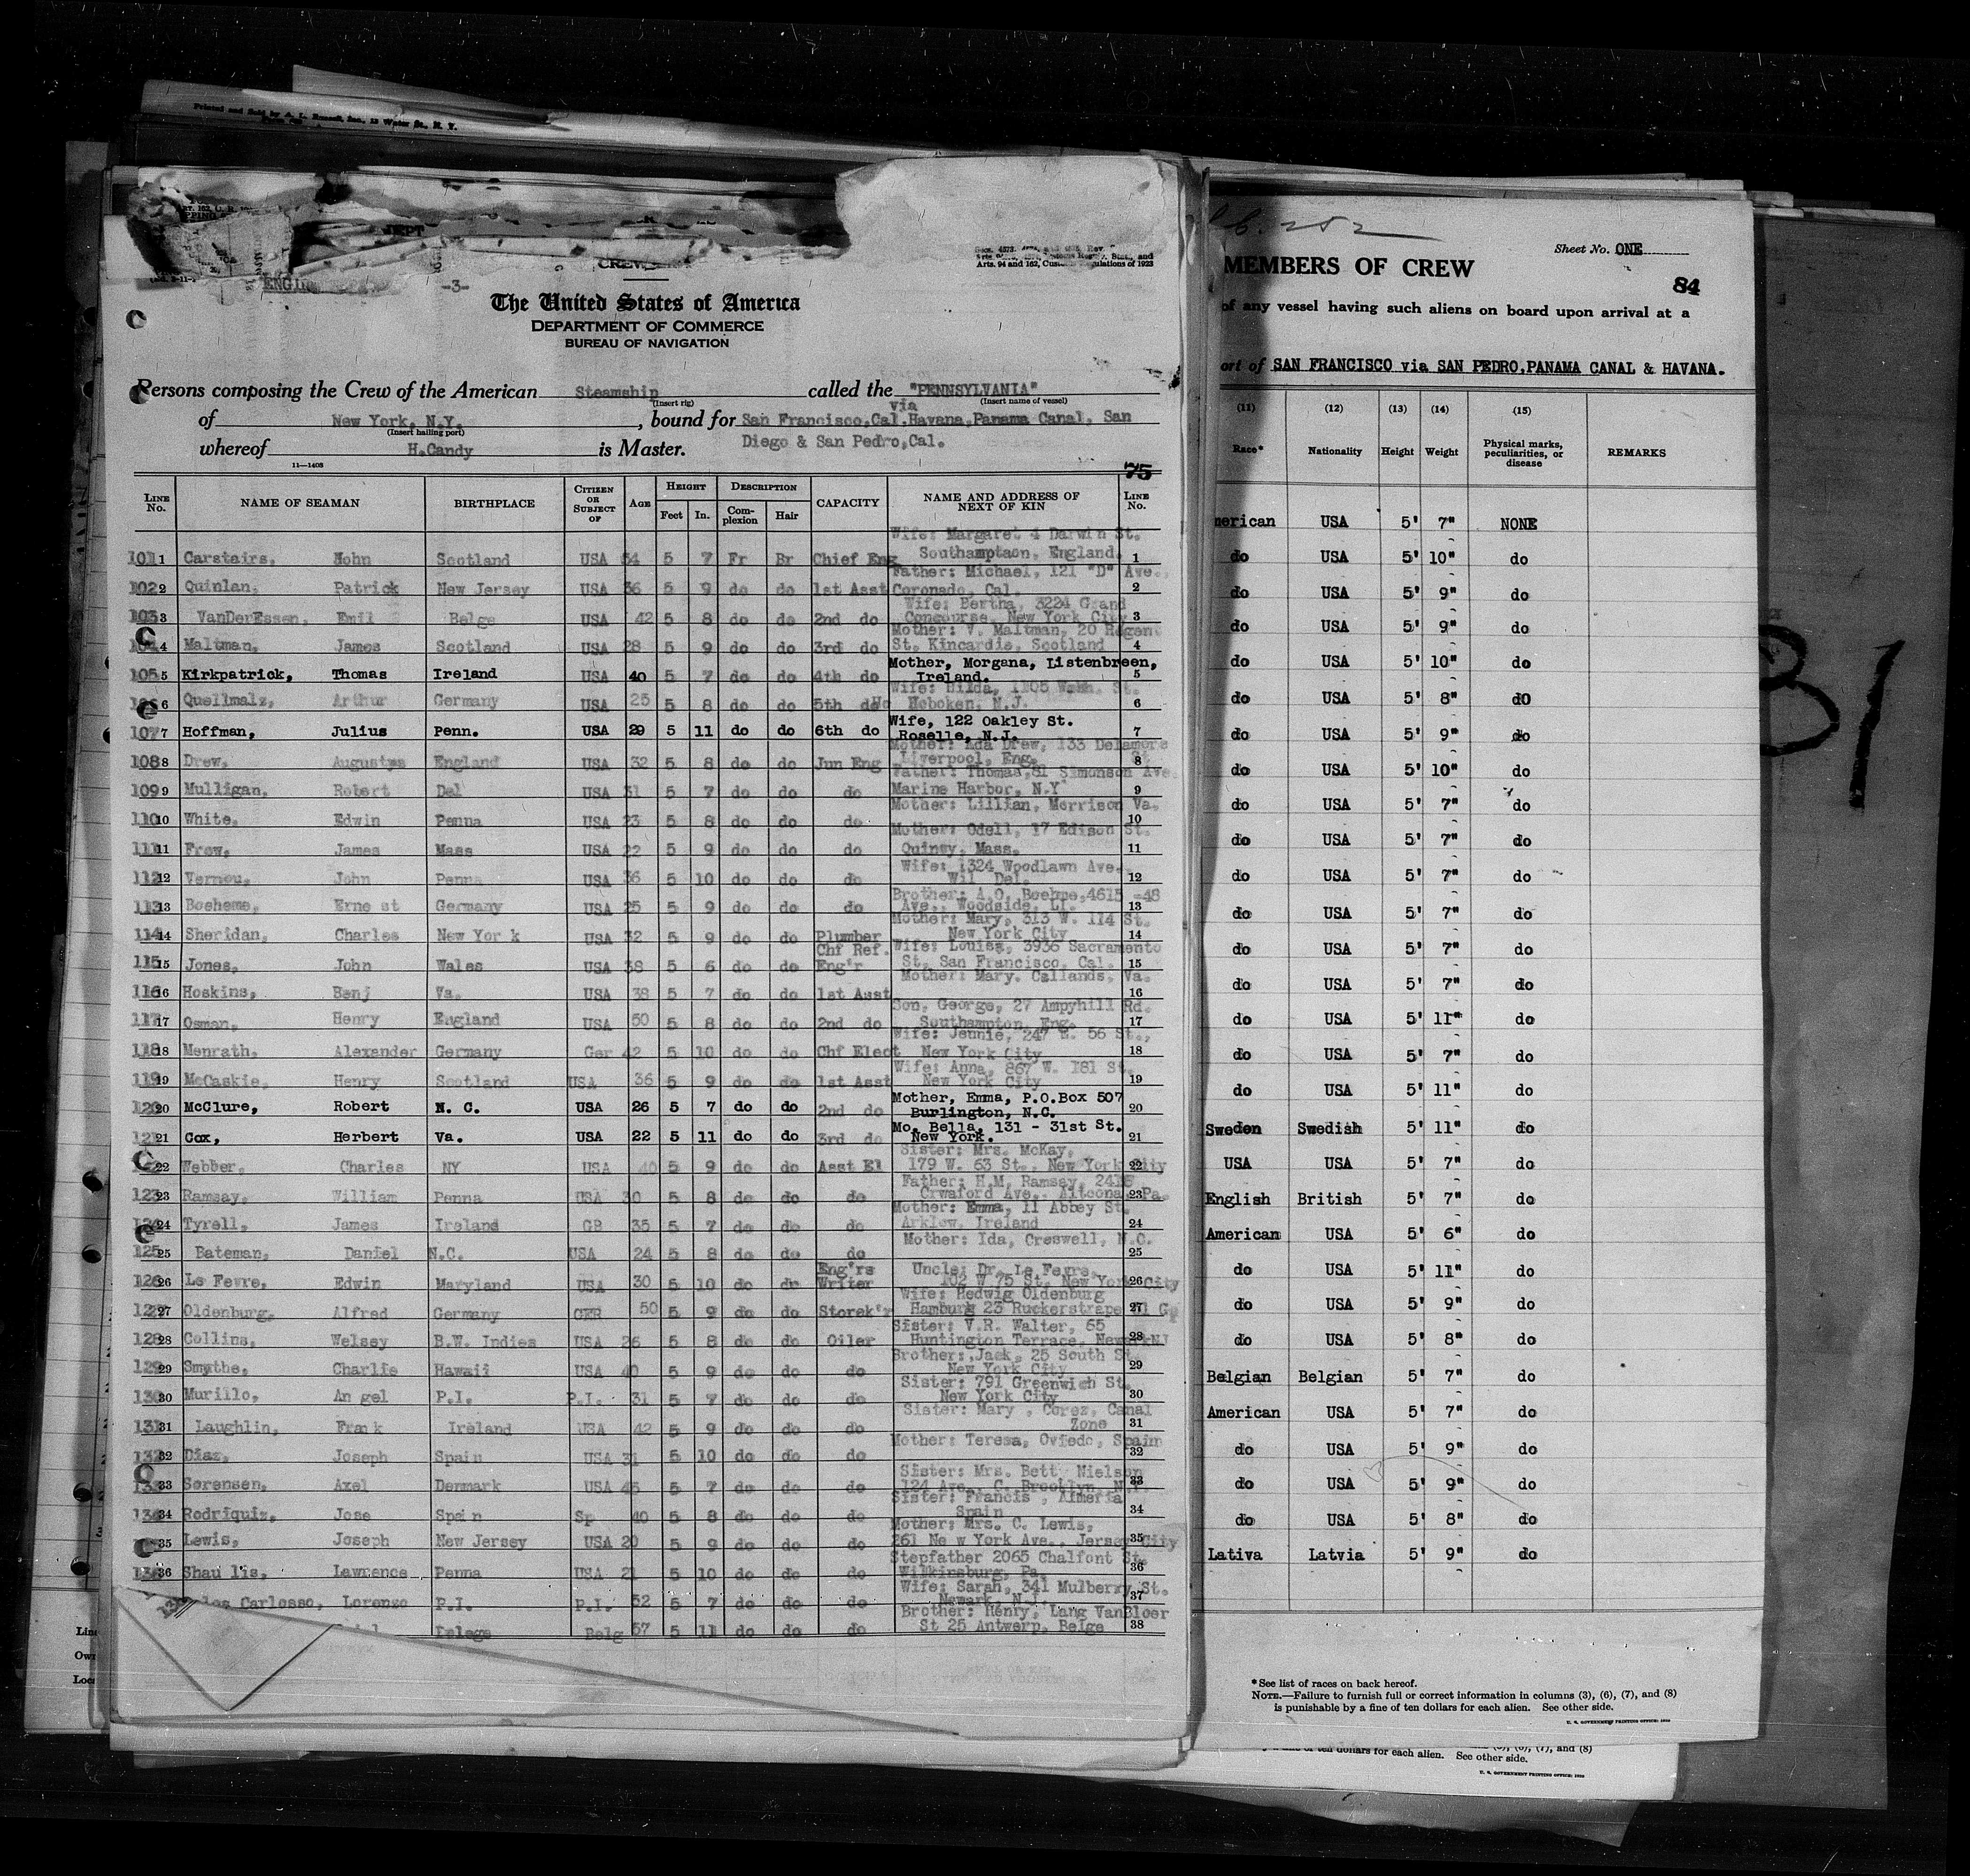 Printed and Sold by A. L. Russell, Inc., 12 Water St., N. Y.
DEPT
CREW
ENGIN
-3-
Arts. 94 and 162, Customs Regulations of 1923
The United States of America
DEPARTMENT OF COMMERCE
BUREAU OF NAVIGATION
Persons composing the Crew of the American Steamship called the "PENNSYLVANIA"
(Insert rig) (Insert name of vessel)
via
of New York, N.Y. , bound for San Francisco,Cal.Havana,Panama Canal, San
(Insert hailing port)
Diego & San Pedro,Cal.
whereof H.Candy is Master.
11—1403
75
LINE No. NAME OF SEAMAN BIRTHPLACE CITIZEN OR SUBJECT OF AGE HEIGHT Feet In. DESCRIPTION Complexion Hair CAPACITY NAME AND ADDRESS OF NEXT OF KIN LINE No.
Wife: Margaret 4 Darwin St.
101 1 Carstairs, Hohn Scotland USA 54 5 7 Fr Br Chief Eng Southamptaon, England. 1
Father: Michael, 121 "D" Ave.,
102 2 Quinlan, Patrick New Jersey USA 36 5 9 do do 1st Asst Coronado, Cal. 2
Wife: Bertha, 3224 Grand
103 3 VanDerEssen, Emil Belge USA 42 5 8 do do 2nd do Concourse, New York City 3
Mother: V. Maltman, 20 Regent
104 4 Maltman, James Scotland USA 28 5 9 do do 3rd do St. Kincardis, Scotland 4
Mother, Morgana, Listenbreen,
105 5 Kirkpatrick, Thomas Ireland USA 40 5 7 do do 4th do Ireland. 5
Wife: Hilda, 1105 Wash. St.
106 6 Quellmalz, Arthur Germany USA 25 5 8 do do 5th do Hoboken, N.J. 6
Wife, 122 Oakley St.
107 7 Hoffman, Julius Penn. USA 29 5 11 do do 6th do Roselle, N.J. 7
Mother: Ada Drew, 133 Delamore
108 8 Drew, Augustus England USA 32 5 8 do do Jun Eng Liverpool, Eng. St. 8
Father: Thomas,81 Simonson Ave.
109 9 Mulligan, Robert Del USA 31 5 7 do do do Marine Harbor, N.Y 9
Mother: Lillian, Morrison Va.
110 10 White, Edwin Penna USA 23 5 8 do do do 10
Mother: Odell, 17 Edison St.
111 11 Frew, James Mass USA 22 5 9 do do do Quincy, Mass. 11
Wife: 1324 Woodlawn Ave.
112 12 Vernou, John Penna USA 36 5 10 do do do Wil Del. 12
Brother: A.O. Boehme,4615 -48
113 13 Boeheme, Erne st Germany USA 25 5 9 do do do Ave., Woodside, LI. 13
Mother: Mary, 313 W. 114 St.
114 14 Sheridan, Charles New Yor k USA 32 5 9 do do Plumber New York City 14
Chf Ref. Wife: Louisa, 3936 Sacramento
115 15 Jones, John Wales USA 38 5 6 do do Eng'r St. San Francisco, Cal. 15
Mother: Mary. Callands, Va.
116 16 Hoskins, Benj Va. USA 38 5 7 do do 1st Asst 16
Son, George, 27 Ampyhill Rd.
117 17 Osman, Henry England USA 50 5 8 do do 2nd do Southampton, Eng. 17
Wife: Jennie, 247 E. 56 St.,
118 18 Menrath, Alexander Germany Ger 42 5 10 do do Chf Elect New York City 18
Wife: Anna, 867 W. 181 St.
119 19 McCaskie, Henry Scotland USA 36 5 9 do do 1st Asst New York City 19
Mother, Emma, P.O.Box 507
120 20 McClure, Robert N. C. USA 26 5 7 do do 2nd do Burlington, N.C. 20
Mo. Bella, 131 - 31st St.
121 21 Cox, Herbert Va. USA 22 5 11 do do 3rd do New York. 21
Sister: Mrs. McKay,
22 Webber, Charles NY USA 40 5 9 do do Asst El 179 W. 63 St., New York City 22
Father: H.M. Ramsay, 2415
123 23 Ramsay, William Penna USA 30 5 8 do do do Crwaford Ave., Altoona, Pa. 23
Mother: Emma, 11 Abbey St.
124 24 Tyrell, James Ireland GB 35 5 7 do do do Arklow, Ireland 24
Mother: Ida, Creswell, N.C.
125 25 Bateman, Daniel N.C. USA 24 5 8 do do do 25
Eng'rs Uncle: Dr. Le Fevre,
126 26 Le Fevre, Edwin Maryland USA 30 5 10 do dr Writer 102 W 75 St. New York City 26
Wife: Hedwig Oldenburg
127 27 Oldenburg, Alfred Germany GER 50 5 9 do do Storek'r Hamburg 23 Ruckerstrape 27
Sister: V.R. Walter, 65
128 28 Collins, Welsey B.W. Indies USA 26 5 8 do do Oiler Huntington Terrace, Newark NJ 28
Brother:,Jack, 25 South St.
129 29 Smythe, Charlie Hawaii USA 40 5 9 do do do New York City 29
Sister: 791 Greenwich St.
130 30 Murillo, An gel P.I. P.I. 31 5 7 do do do New York City 30
Sister: Mary , Corez, Canal
131 31 Laughlin, Frank Ireland USA 42 5 9 do do do Zone 31
Mother: Teresa, Oviedo, Spain
132 32 Diaz, Joseph Spain USA 31 5 10 do do do 32
Sister: Mrs. Bett Nielson
133 33 Sorensen, Axel Denmark USA 45 5 7 do do do 124 Ave., C. Brooklyn, N.Y. 33
Sister: Francis , Almeria
134 34 Rodriquiz, Jose Spain Sp 40 5 8 do do do Spain 34
Mother: Mrs. C. Lewis,
35 Lewis, Joseph New Jersey USA 20 5 9 do do do 261 Ne w York Ave., Jersey City 35
Stepfather 2065 Chalfont St.
136 36 Shau lis, Lawrence Penna USA 21 5 10 do do do Wilkinsburg, Pa. 36
Wife: Sarah, 341 Mulberry St.
Carlosso, Lorenzo P.I. P.I. 52 5 7 do do do Newark, N.J. 37
Brother: Henry, Lang VanBloer
Belg 57 5 11 do do do St 25 Antwerp, Belge 38
Sheet No. ONE
MEMBERS OF CREW
84
of any vessel having such aliens on board upon arrival at a
ort of SAN FRANCISCO via SAN PEDRO,PANAMA CANAL & HAVANA.
(11) (12) (13) (14) (15)
Race* Nationality Height Weight Physical marks, peculiarities, or disease REMARKS
merican USA 5' 7" NONE
do USA 5' 10" do
do USA 5' 9" do
do USA 5' 9" do
do USA 5' 10" do
do USA 5' 8" dO
do USA 5' 9" do
do USA 5' 10" do
do USA 5' 7" do
do USA 5' 7" do
do USA 5' 7" do
do USA 5' 7" do
do USA 5' 7" do
do USA 5' 7" do
do USA 5' 11" do
do USA 5' 7" do
do USA 5' 11" do
Sweden Swedish 5' 11" do
USA USA 5' 7" do
English British 5' 7" do
American USA 5' 6" do
do USA 5' 11" do
do USA 5' 9" do
do USA 5' 8" do
Belgian Belgian 5' 7" do
American USA 5' 7" do
do USA 5' 9" do
do USA 5' 9" do
do USA 5' 8" do
Lativa Latvia 5' 9" do
*See list of races on back hereof.
NOTE.—Failure to furnish full or correct information in columns (3), (6), (7), and (8)
is punishable by a fine of ten dollars for each alien. See other side.
U. S. GOVERNMENT PRINTING OFFICE
ten dollars for each alien. See other side.
U. S. GOVERNMENT PRINTING OFFICE